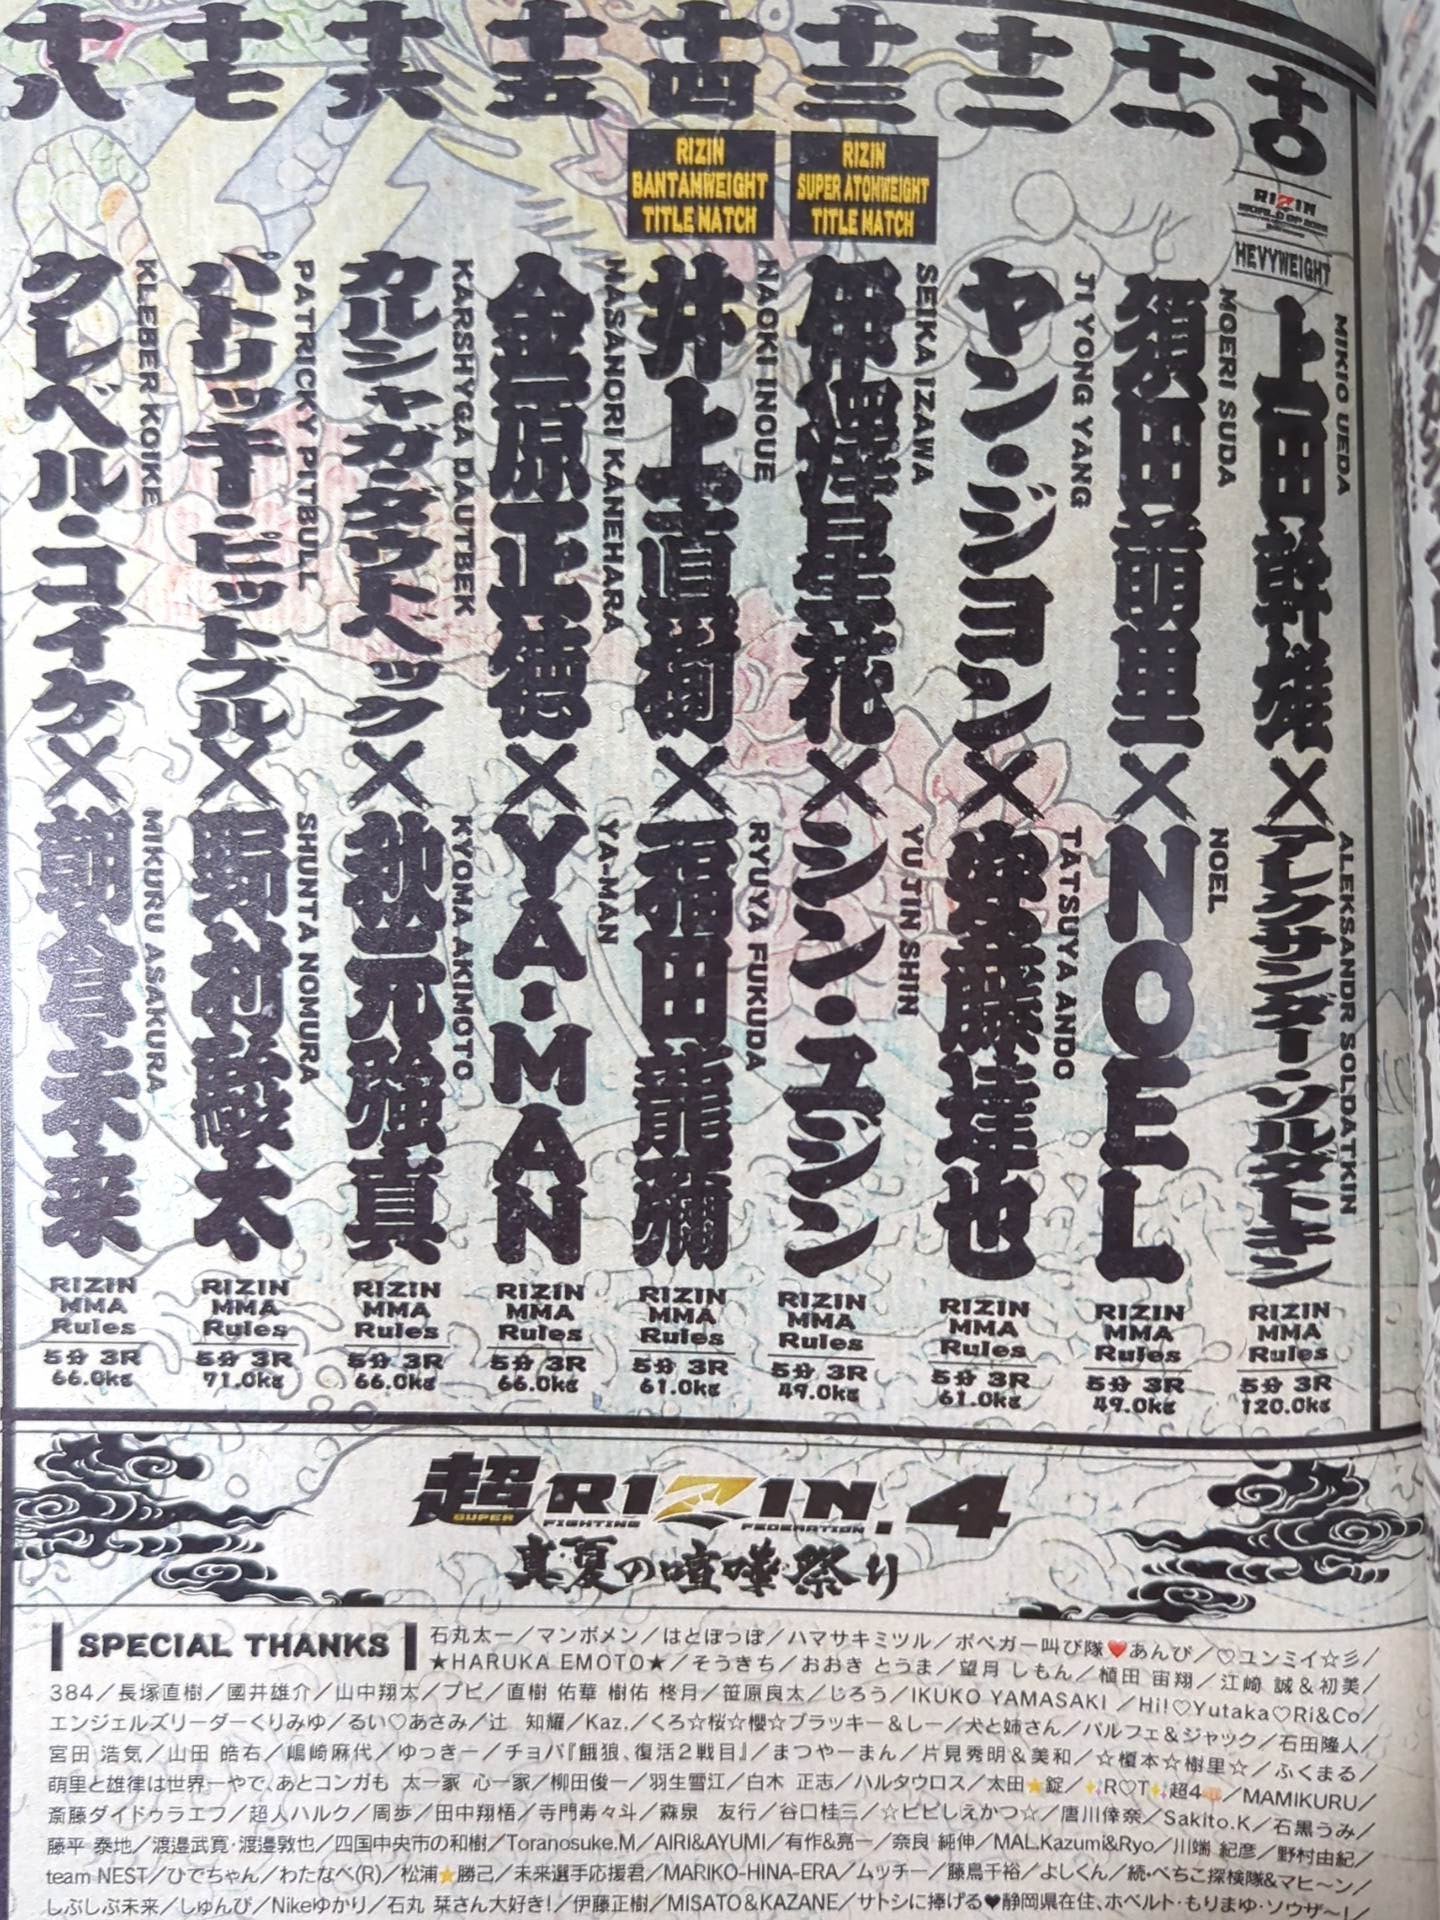 十〇
RIZIN
HEVYWEIGHT
上田幹雄
MIKIO UEDA
×
アレクサンダー・ソルダトキン
ALEKSANDR SOLDATKIN
RIZIN
MMA
Rules
5分 3R
120.0kg
十一
須田萌里
MOERI SUDA
×
NOEL
NOEL
RIZIN
MMA
Rules
5分 3R
49.0kg
十二
ヤン・ジヨン
JI YONG YANG
×
安藤達也
TATSUYA ANDO
RIZIN
MMA
Rules
5分 3R
61.0kg
十三
RIZIN
SUPER ATOMWEIGHT
TITLE MATCH
伊澤星花
SEIKA IZAWA
×
シン・ユジン
YU JIN SHIN
RIZIN
MMA
Rules
5分 3R
49.0kg
十四
RIZIN
BANTAMWEIGHT
TITLE MATCH
井上直樹
NAOKI INOUE
×
福田龍彌
RYUYA FUKUDA
RIZIN
MMA
Rules
5分 3R
61.0kg
十五
金原正徳
MASANORI KANEHARA
×
YA-MAN
YA-MAN
RIZIN
MMA
Rules
5分 3R
66.0kg
十六
カルシャガ・ダウトベック
KARSHYGA DAUTBEK
×
秋元強真
KYOMA AKIMOTO
RIZIN
MMA
Rules
5分 3R
66.0kg
十七
パトリッキー・ピットブル
PATRICKY PITBULL
×
野村駿太
SHUNTA NOMURA
RIZIN
MMA
Rules
5分 3R
71.0kg
十八
クレベル・コイケ
KLEBER KOIKE
×
朝倉未来
MIKURU ASAKURA
RIZIN
MMA
Rules
5分 3R
66.0kg
超RIZIN.4
SUPER FIGHTING FEDERATION
真夏の喧嘩祭り
SPECIAL THANKS
石丸太一／マンボメン／はとぽっぽ／ハマサキミツル／ボベガー叫び隊❤あんぴ／♡ユンミイ☆彡／
★HARUKA EMOTO★／そうきち／おおき とうま／望月 しもん／植田 宙翔／江崎 誠＆初美／
384／長塚直樹／國井雄介／山中翔太／プピ／直樹 佑華 樹佑 柊月／笹原良太／じろう／IKUKO YAMASAKI／Hi!♡Yutaka♡Ri&Co／
エンジェルズリーダーくりみゆ／るい♡あさみ／辻 知耀／Kaz.／くろ☆桜☆櫻☆ブラッキー＆しー／犬と姉さん／パルフェ＆ジャック／石田隆人／
宮田 浩気／山田 皓右／嶋崎麻代／ゆっきー／チョパ『餓狼、復活2戦目』／まつやーまん／片見秀明＆美和／☆榎本☆樹里☆／ふくまる／
萌里と雄律は世界一やで、あとコンガも 太一家 心一家／柳田俊一／羽生雪江／白木 正志／ハルタウロス／太田⭐錠／✨R♡T✨超4👊／MAMIKURU／
斎藤ダイドゥラエフ／超人ハルク／周歩／田中翔悟／寺門寿々斗／森泉 友行／谷口桂三／☆ピピしえかつ☆／唐川倖奈／Sakito.K／石黒うみ／
藤平 泰地／渡邉武寛・渡邉敦也／四国中央市の和樹／Toranosuke.M／AIRI&AYUMI／有作&亮一／奈良 純伸／MAL.Kazumi&Ryo／川端 紀彦／野村由紀／
team NEST／ひでちゃん／わたなべ(R)／松浦⭐勝己／未来選手応援君／MARIKO-HINA-ERA／ムッチー／藤鳥千裕／よしくん／続・べちこ探検隊&マヒ〜ン／
しぶしぶ未来／しゅんぴ／Nikeゆかり／石丸 栞さん大好き!／伊藤正樹／MISATO＆KAZANE／サトシに捧げる♥静岡県在住、ホベルト・もりまゆ・ソウザ〜!／